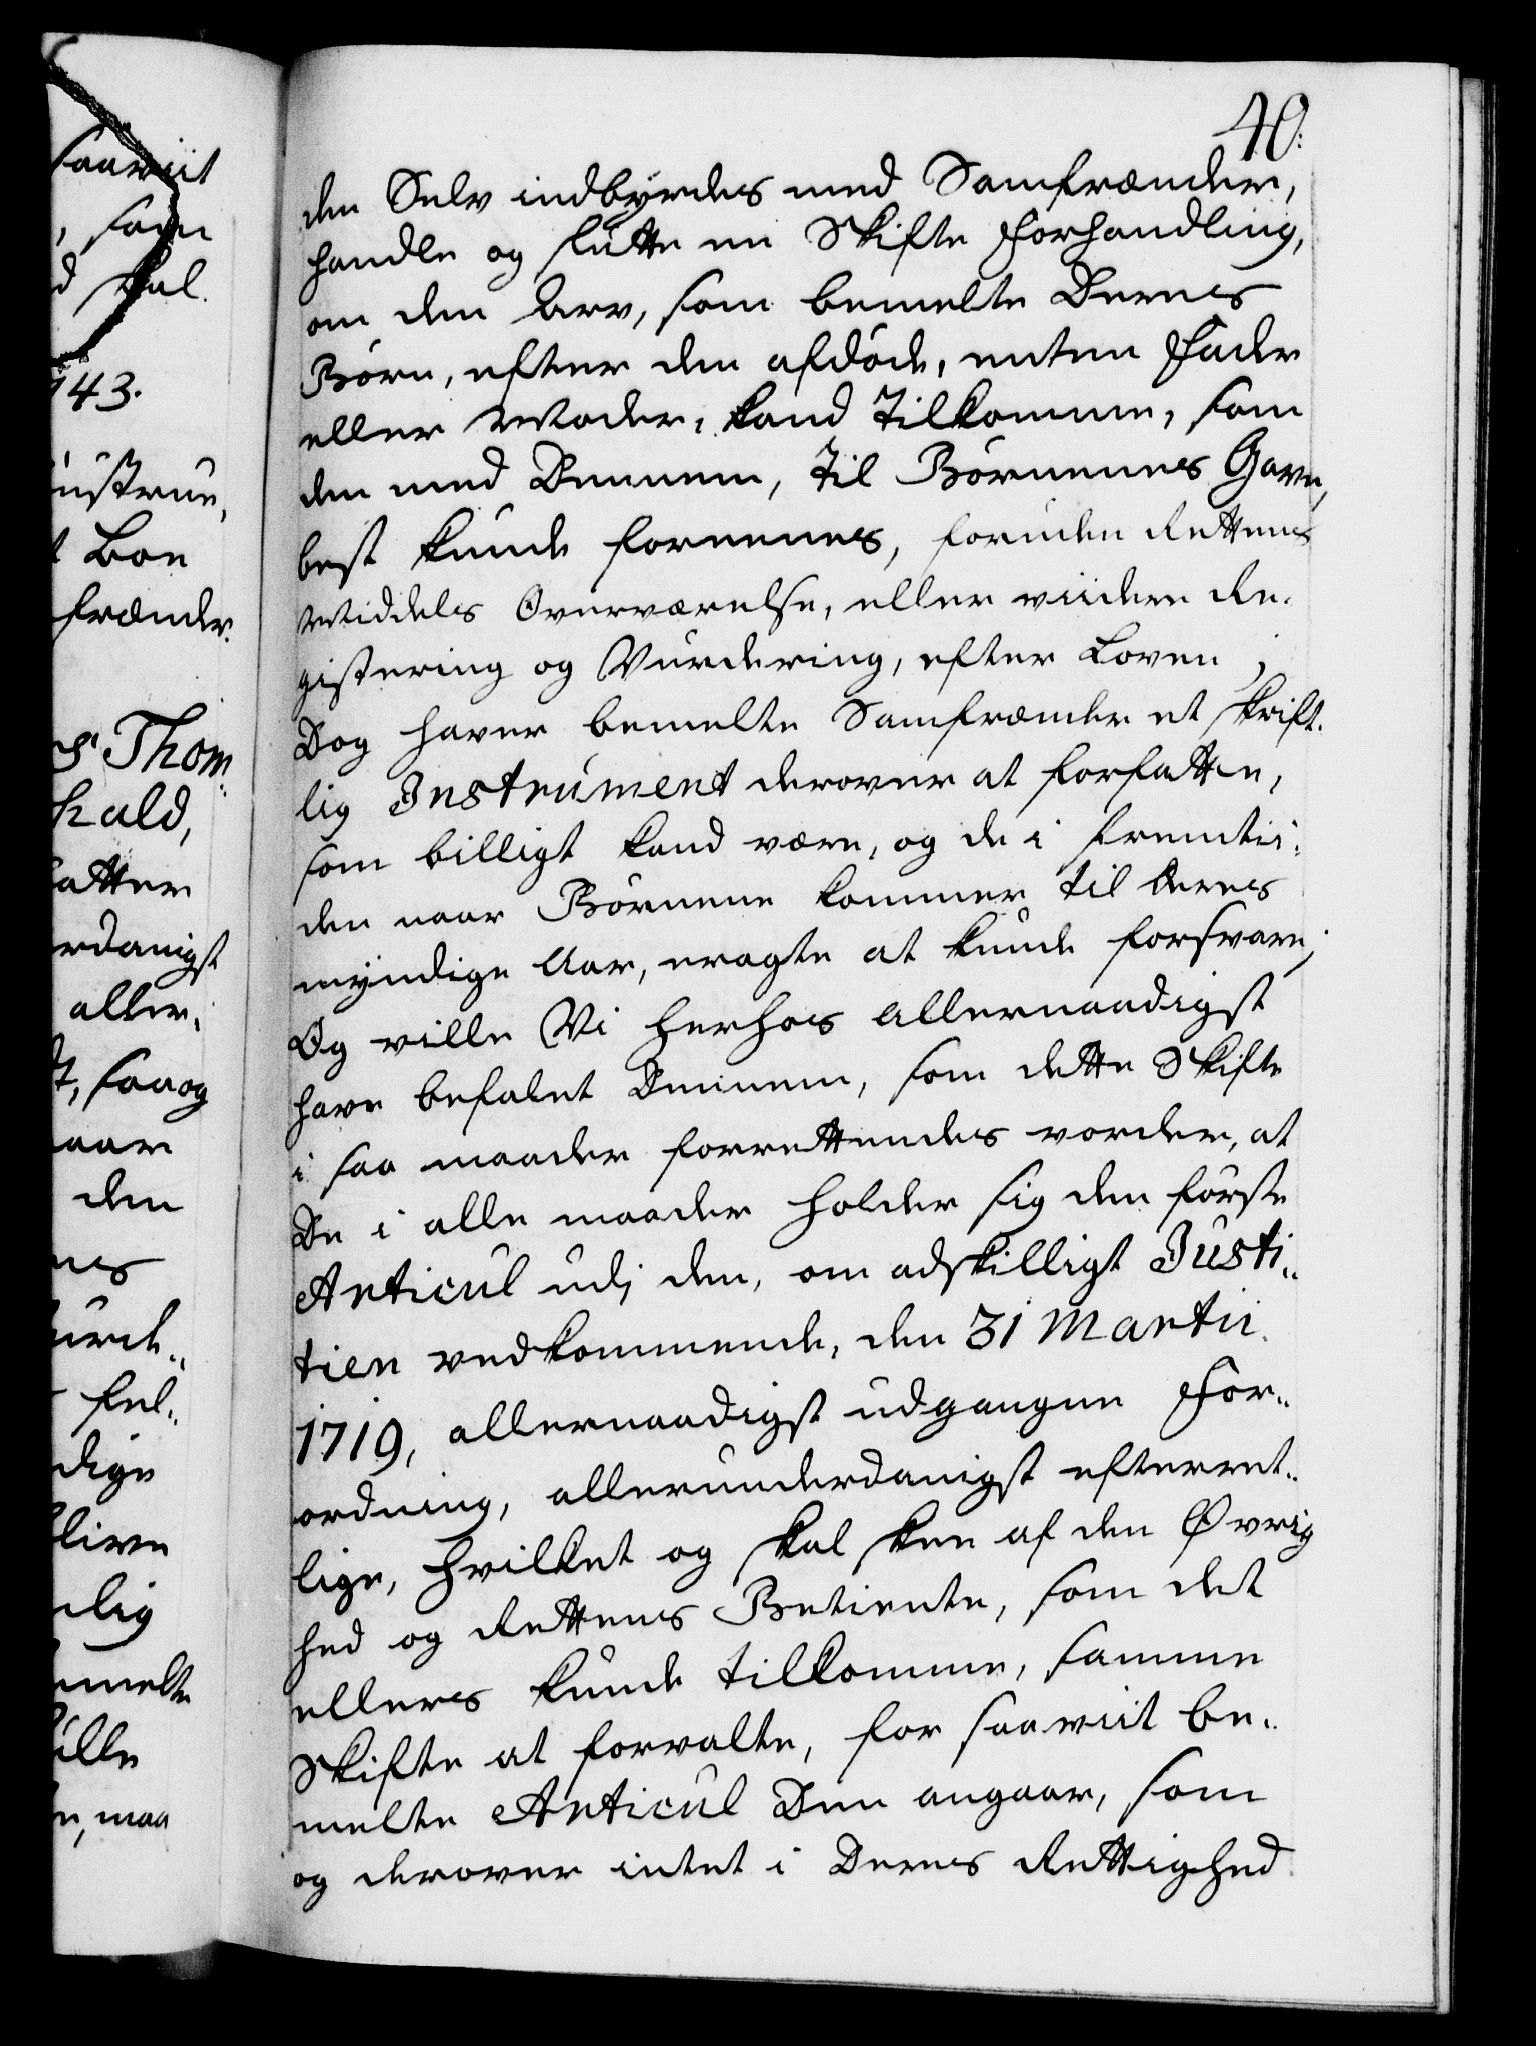 40.
den Selv indbyrdes med Samfrænder,
handle og slutte en Skifte Forhandling,
om den Arv, som bemelte Deres
Børn, efter den afdøde, enten Fader
eller Moder, kand Tilkomme, som
den med Dennem, til Børnenes Gavn,
best kunde foreenes, foruden Rettens
Middels Overværelse, eller viidere Re-
gistering og Vurdering, efter Loven;
Dog haver bemelte Samfrænder et skrift-
lig Instrument derover at forfatte,
som billigt kand være, og de i fremtii-
den naar Børnene kommer til deres
myndige Aar, eragte at kunde forsvare;
Og ville Vi herhos allernaadigst
have befalet Dennem, som dette Skifte
i saa maader forrettendes vorder, at
De i alle maader holder sig den første
Articul udj den, om adskilligt Justi-
tien vedkommende, den 31 Martii
1719, allernaadigst udgangne For-
ordning, allerunderdanigst efterret-
lige, hvilket og skal skee af den Øvrig
hed og Rettens Betiente, som det
ellers kunde tilkomme, samme
Skifte at forvalte, for saaviit be-
melte Articul Dem angaar, som
og derover intet i Deres Rettighed
saaviit
, som
d skal
143.
ustrue,
t Boe
frænder.
s Thom
hald,
atter
rdanigst
aller-
t, saa og
aar
den
es
urde-
fel-
dige
live
elig
emelte
ille
e, maa